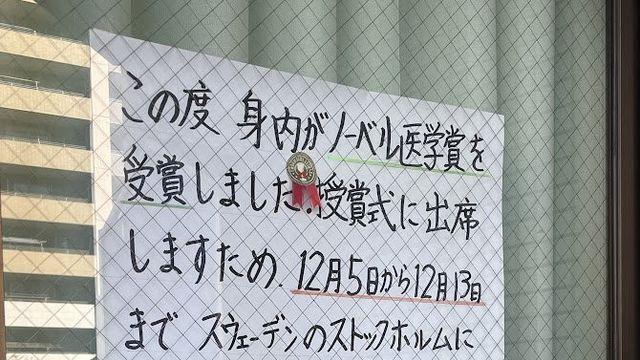 この度 身内がノーベル医学賞を
受賞しました.授賞式に出席
しますため、12月5日から12月13日
まで スウェーデンのストックホルムに